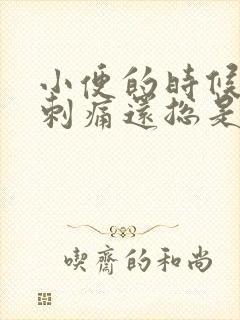 小便的時候
刺痛還總是
喫齋的和尚